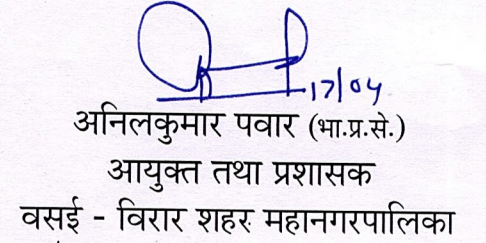 17/04
अनिलकुमार पवार (भा.प्र.से.)
आयुक्त तथा प्रशासक
वसई - विरार शहर महानगरपालिका